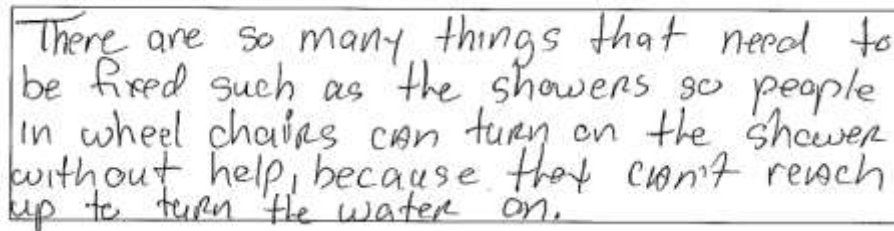 There are so many things that need to
be fixed such as the showers so people
in wheel chairs can turn on the shower
without help, because they can't reach
up to turn the water on.